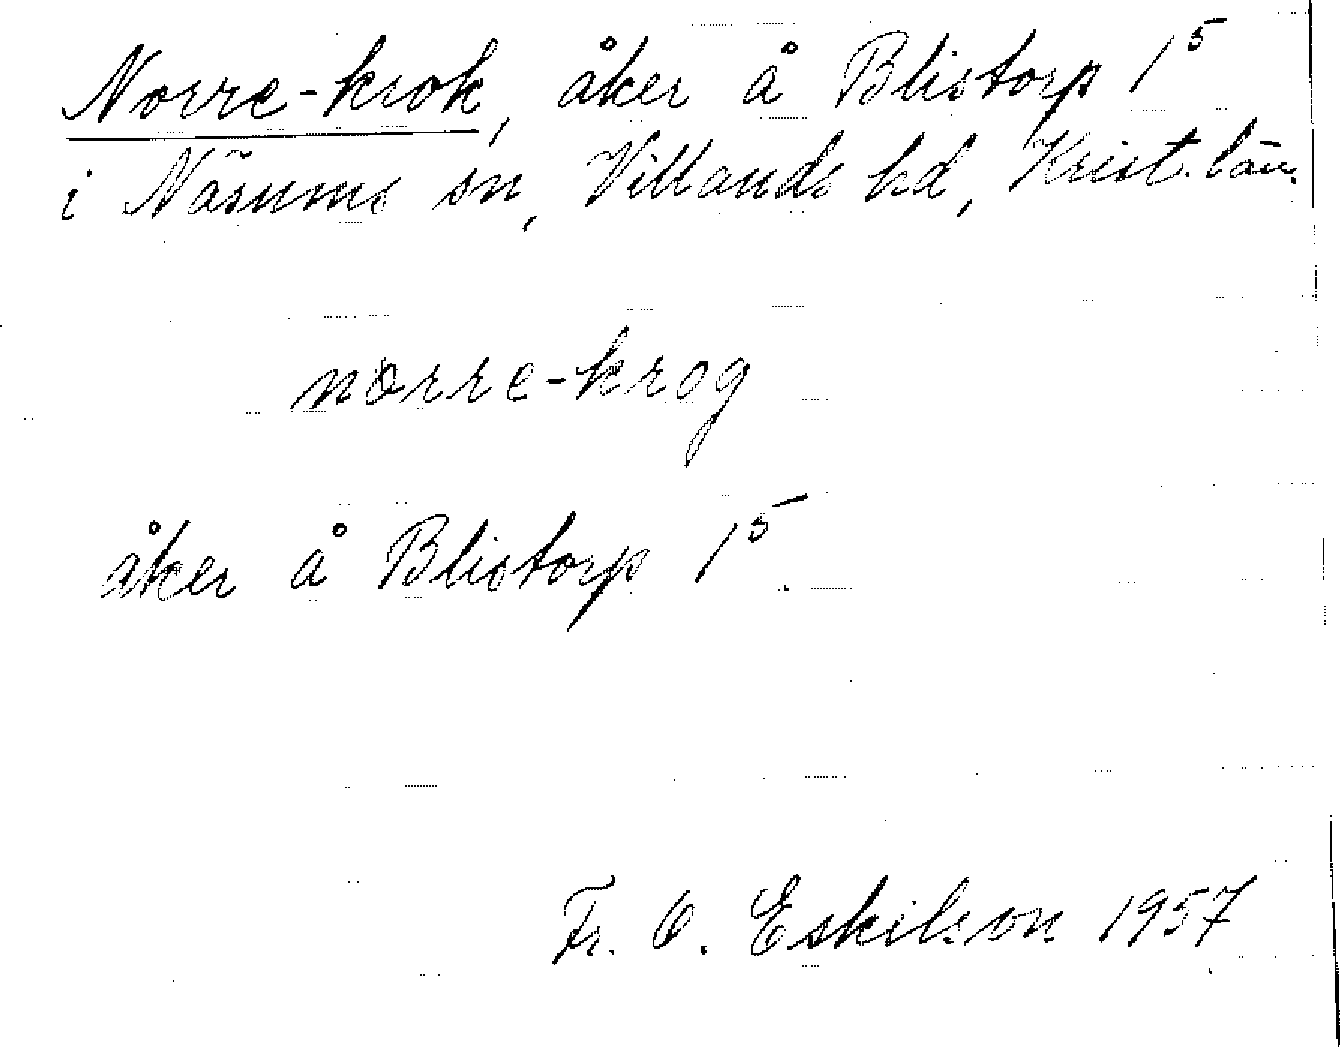 Norre-krok, åker å Blistorp 1⁵
i Näsums sn, Villands hd, Krist. län.
norre-krog
åker å Blistorp 1⁵
Fr. O. Eskilsson 1957